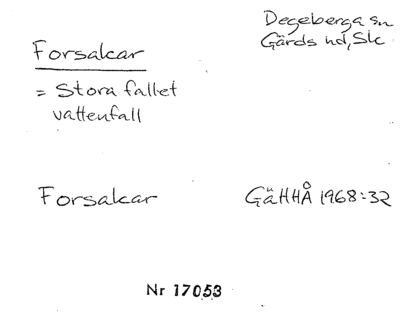 Forsakar
Degeberga sn
Gärds hd, Sk
= Stora fallet
vattenfall
Forsakar
GäHHÅ 1968:32
Nr 17053